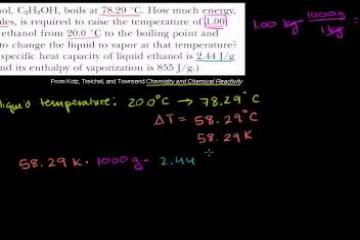 nol, C₂H₅OH, boils at 78.29 °C. How much energy,
ules, is required to raise the temperature of 1.00
ethanol from 20.0 °C to the boiling point and
to change the liquid to vapor at that temperature?
specific heat capacity of liquid ethanol is 2.44 J/g
nd its enthalpy of vaporization is 855 J/g.)
From Kotz, Treichel, and Townsend Chemistry and Chemical Reactivity
1.00 kg · 1000g / 1 kg =
liquid temperature: 20.0°C → 78.29°C
ΔT = 58.29°C
58.29K
58.29 K · 1000 g · 2.44